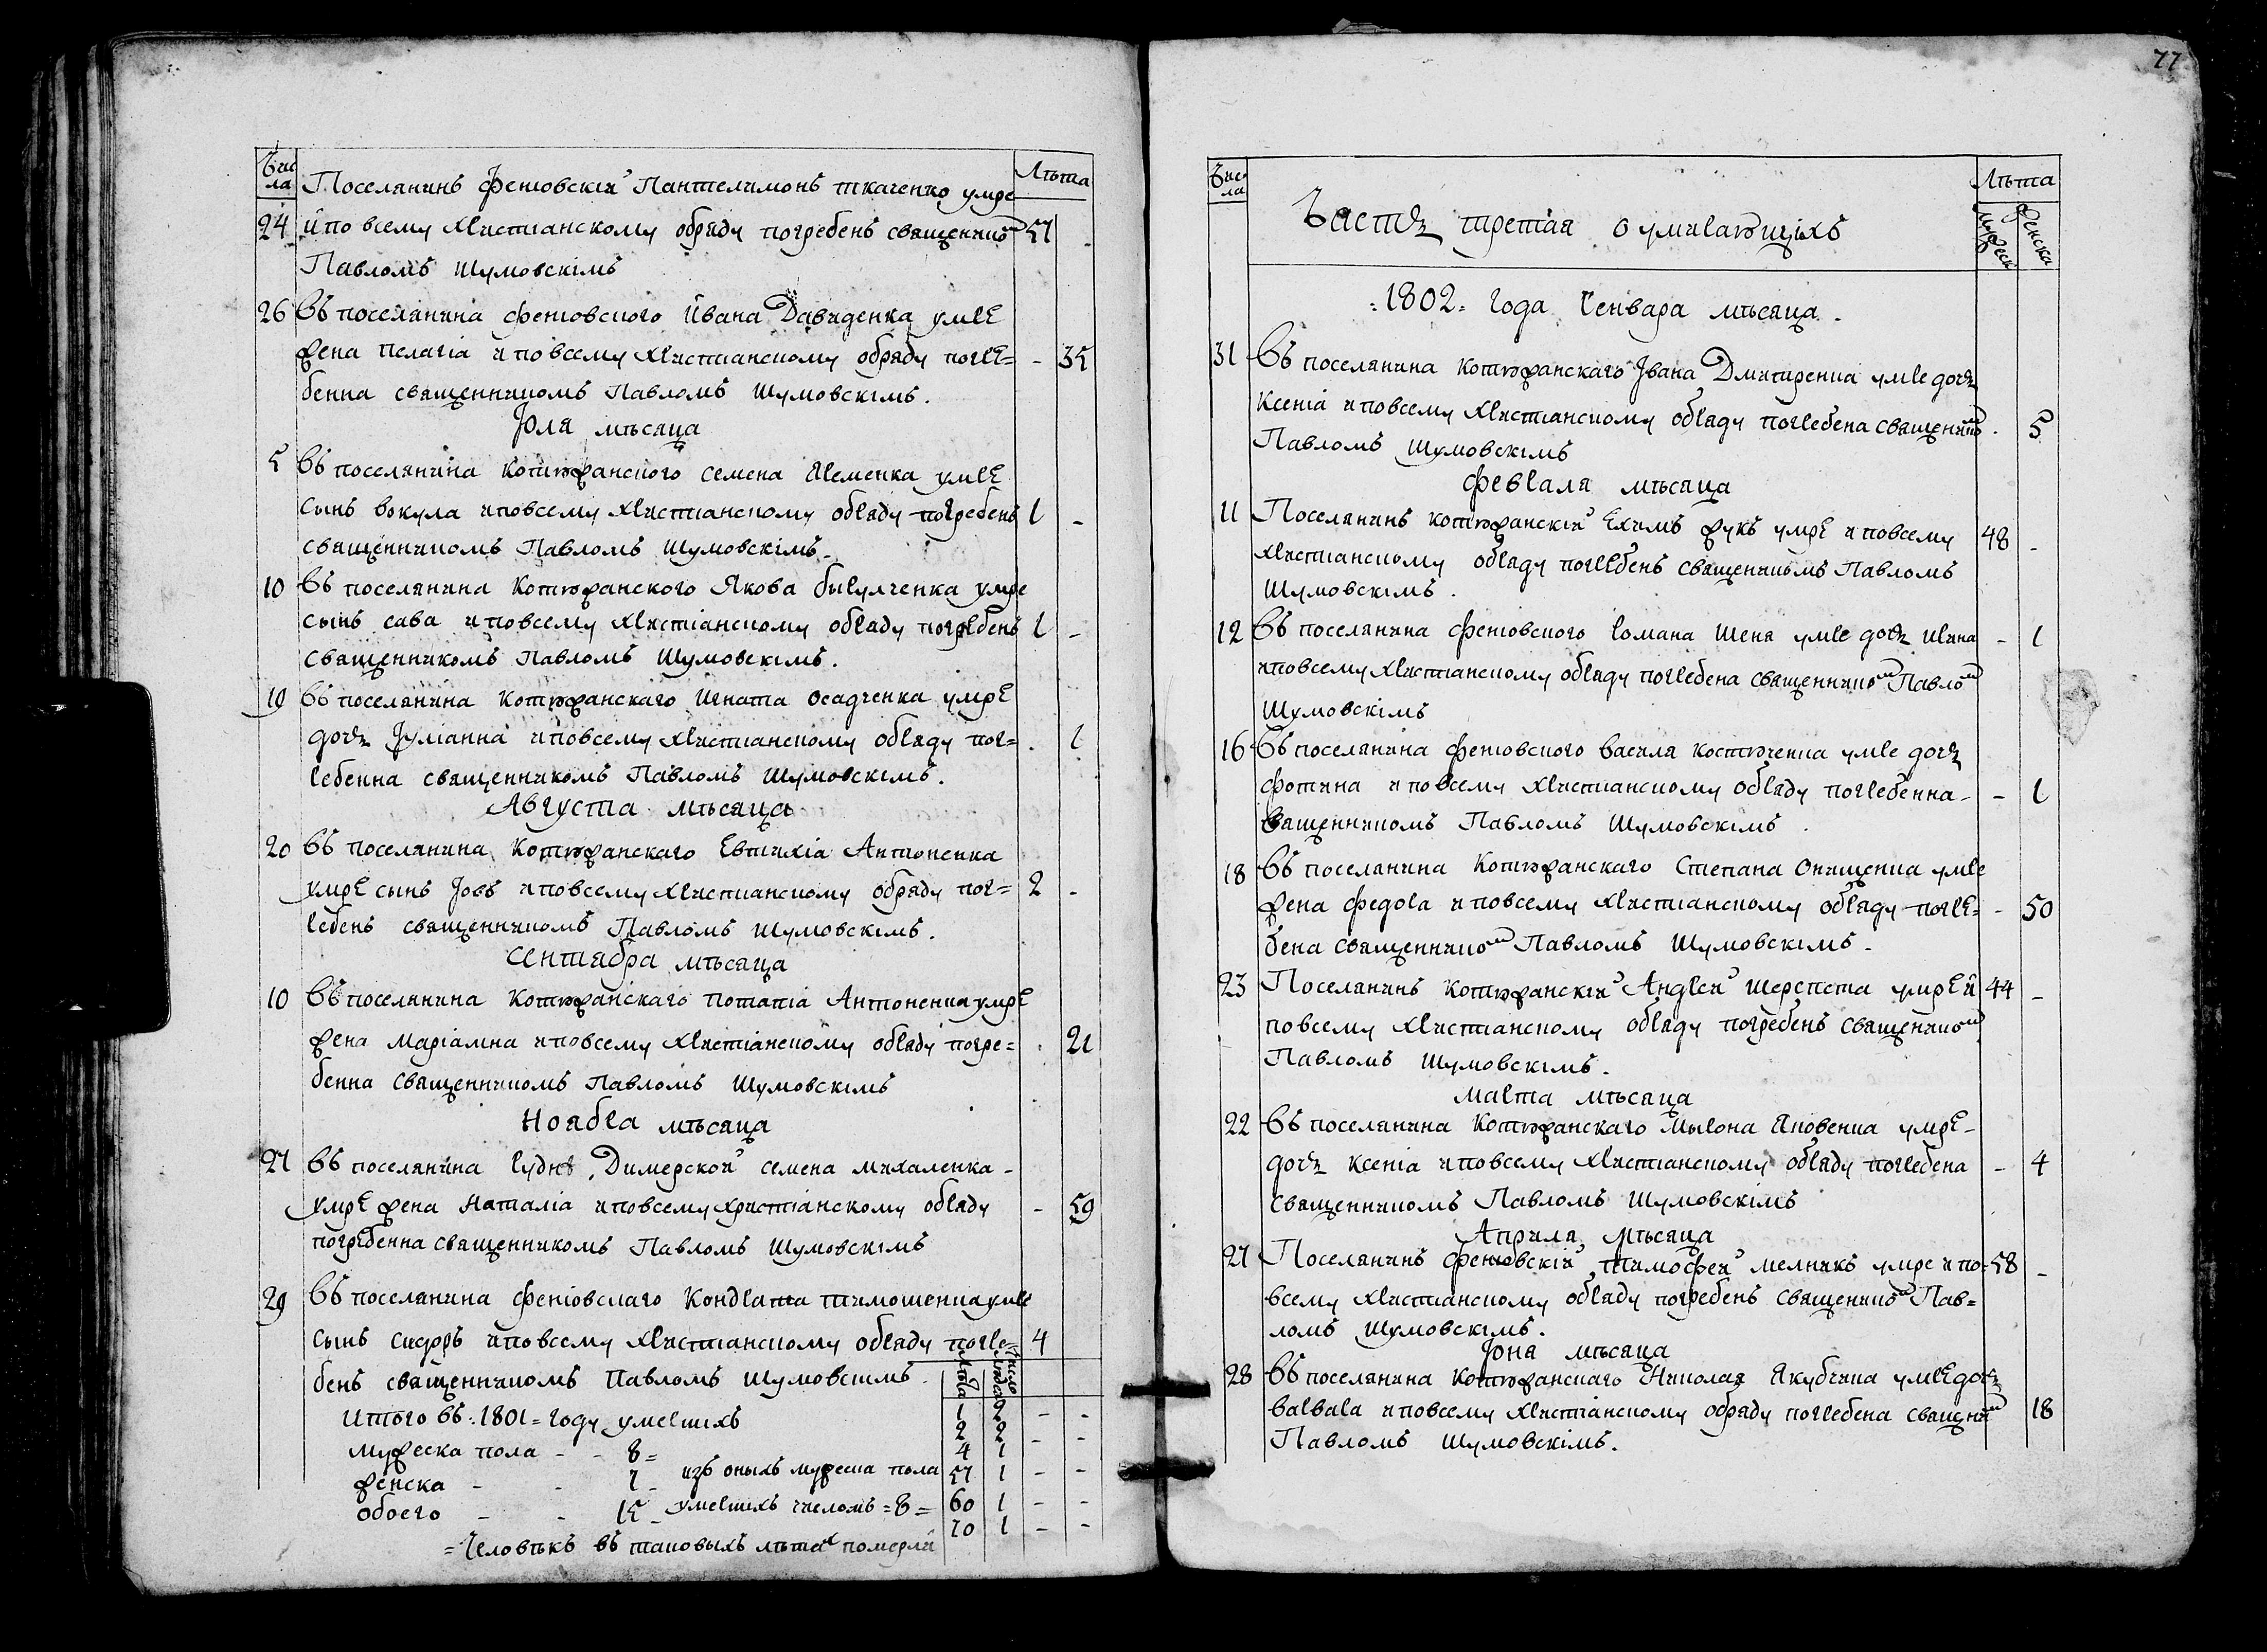 Числа
Лѣта
Поселянинъ феневскій Пантелимонъ ткаченко умре
24 и по всему христианскому обряду погребенъ священико͏ᵐ 57 -
Павломъ Шумовскімъ
26 въ поселянина феневского Ивана Давиденка умре
жена пелагіа и по всему христианскому обряду погре= - 35
бенна священникомъ Павломъ Шумовскимъ.
Іюля мѣсяца
5 въ поселянина котюжанского семена Яременка умре
сынъ вокула и по всему христианскому обряду погребенъ 1 -
священникомъ Павломъ Шумовскімъ.
10 въ поселянина котюжанского Якова умре
сынъ сава и по всему христіанскому обряду погребенъ 1 -
священникомъ Павломъ Шумовскімъ.
19 въ поселянина котюжанскаго Игната осадченка умре
дочь Іуліанна и по всему христианскому обряду пог= . 1
ребенна священникомъ Павломъ Шумовскімъ.
Августа мѣсяца
20 въ поселянина котюжанскаго Евтихіа Антоненка
умре сынъ Іовъ и по всему христианскому обряду пог= 2 -
ребенъ священникомъ Павломъ Шумовскімъ.
Сентября мѣсяца
10 въ поселянина котюжанскаго потапіа Антоненка умре
жена маріамна и по всему христіанскому обряду погре= . 21
бенна священникомъ Павломъ Шумовскімъ
Ноября мѣсяца
27 въ поселянина рудни Димерской семена михаленка -
умре жена Наталіа и по всему христіанскому обряду - 59
погребенна священникомъ Павломъ Шумовскімъ
29 въ поселянина феневскаго Кондрата тимошенка умре
сынъ сидоръ и по всему христианскому обряду погре= 4
бенъ священникомъ Павломъ Шумовскімъ.
лѣта число
итого въ :1801= году умершихъ 1 2 - -
2 2 - -
мужеска пола - - 8= 4 1
женска - - 7- изъ оныхъ мужеска пола 57 1 - -
обоего - - 15- умершихъ числомъ =8= 60 1 - -
=Человѣкъ въ таковыхъ лѣтах померли 70 1 - -
77
Числа
Часть третая о умирающихъ
Лѣта
мужеск
женска
:1802= года Генвара мѣсяца.
31 въ поселянина котюжанскаго Івана Дмитренка умре дочь
ксеніа и по всему христианскому обряду погребена священико͏ᵐ . 5
Павломъ Шумовскімъ
февраля мѣсяца
11 Поселянинъ котюжанскій Ехимъ жукъ умре и по всему 48 -
христианскому обряду погребенъ священикомъ Павломъ
Шумовскімъ.
12 въ поселянина феневского романа Шена умре дочь ирина - 1
и по всему христианскому обряду погребена священнико͏ᵐ Павло͏ᵐ
Шумовскімъ
16 въ поселянина феневского васила костюченка умре дочь
фотина и по всему христианскому обряду погребенна - - 1
священникомъ Павломъ Шумовскімъ.
18 въ поселянина котюжанскаго Степана Онищенка умре
жена федора и по всему христианскому обряду погре= - 50
бена священнико͏ᵐ Павломъ Шумовскімъ.
23 Поселянинъ котюжанскій Андрей шерепета умре и 44 -
по всему христианскому обряду погребенъ священико͏ᵐ
Павломъ Шумовскімъ.
марта мѣсяца
22 въ поселянина котюжанскаго Мырона Яковенка умре -
дочь ксеніа и по всему христианскому обряду погребена - 4
священникомъ Павломъ Шумовскімъ
Априля мѣсяца
27 Поселянинъ феневскій тимофей мелникъ умре и по= 58 -
всему христианскому обряду погребенъ священико͏ᵐ Пав=
ломъ Шумовскімъ.
Іюня мѣсяца
28 въ поселянина котюжанскаго Николая Якубчика умре дочь
варвара и по всему христіанскому обряду погребена священи͏ᵐ 18
Павломъ Шумовскімъ.